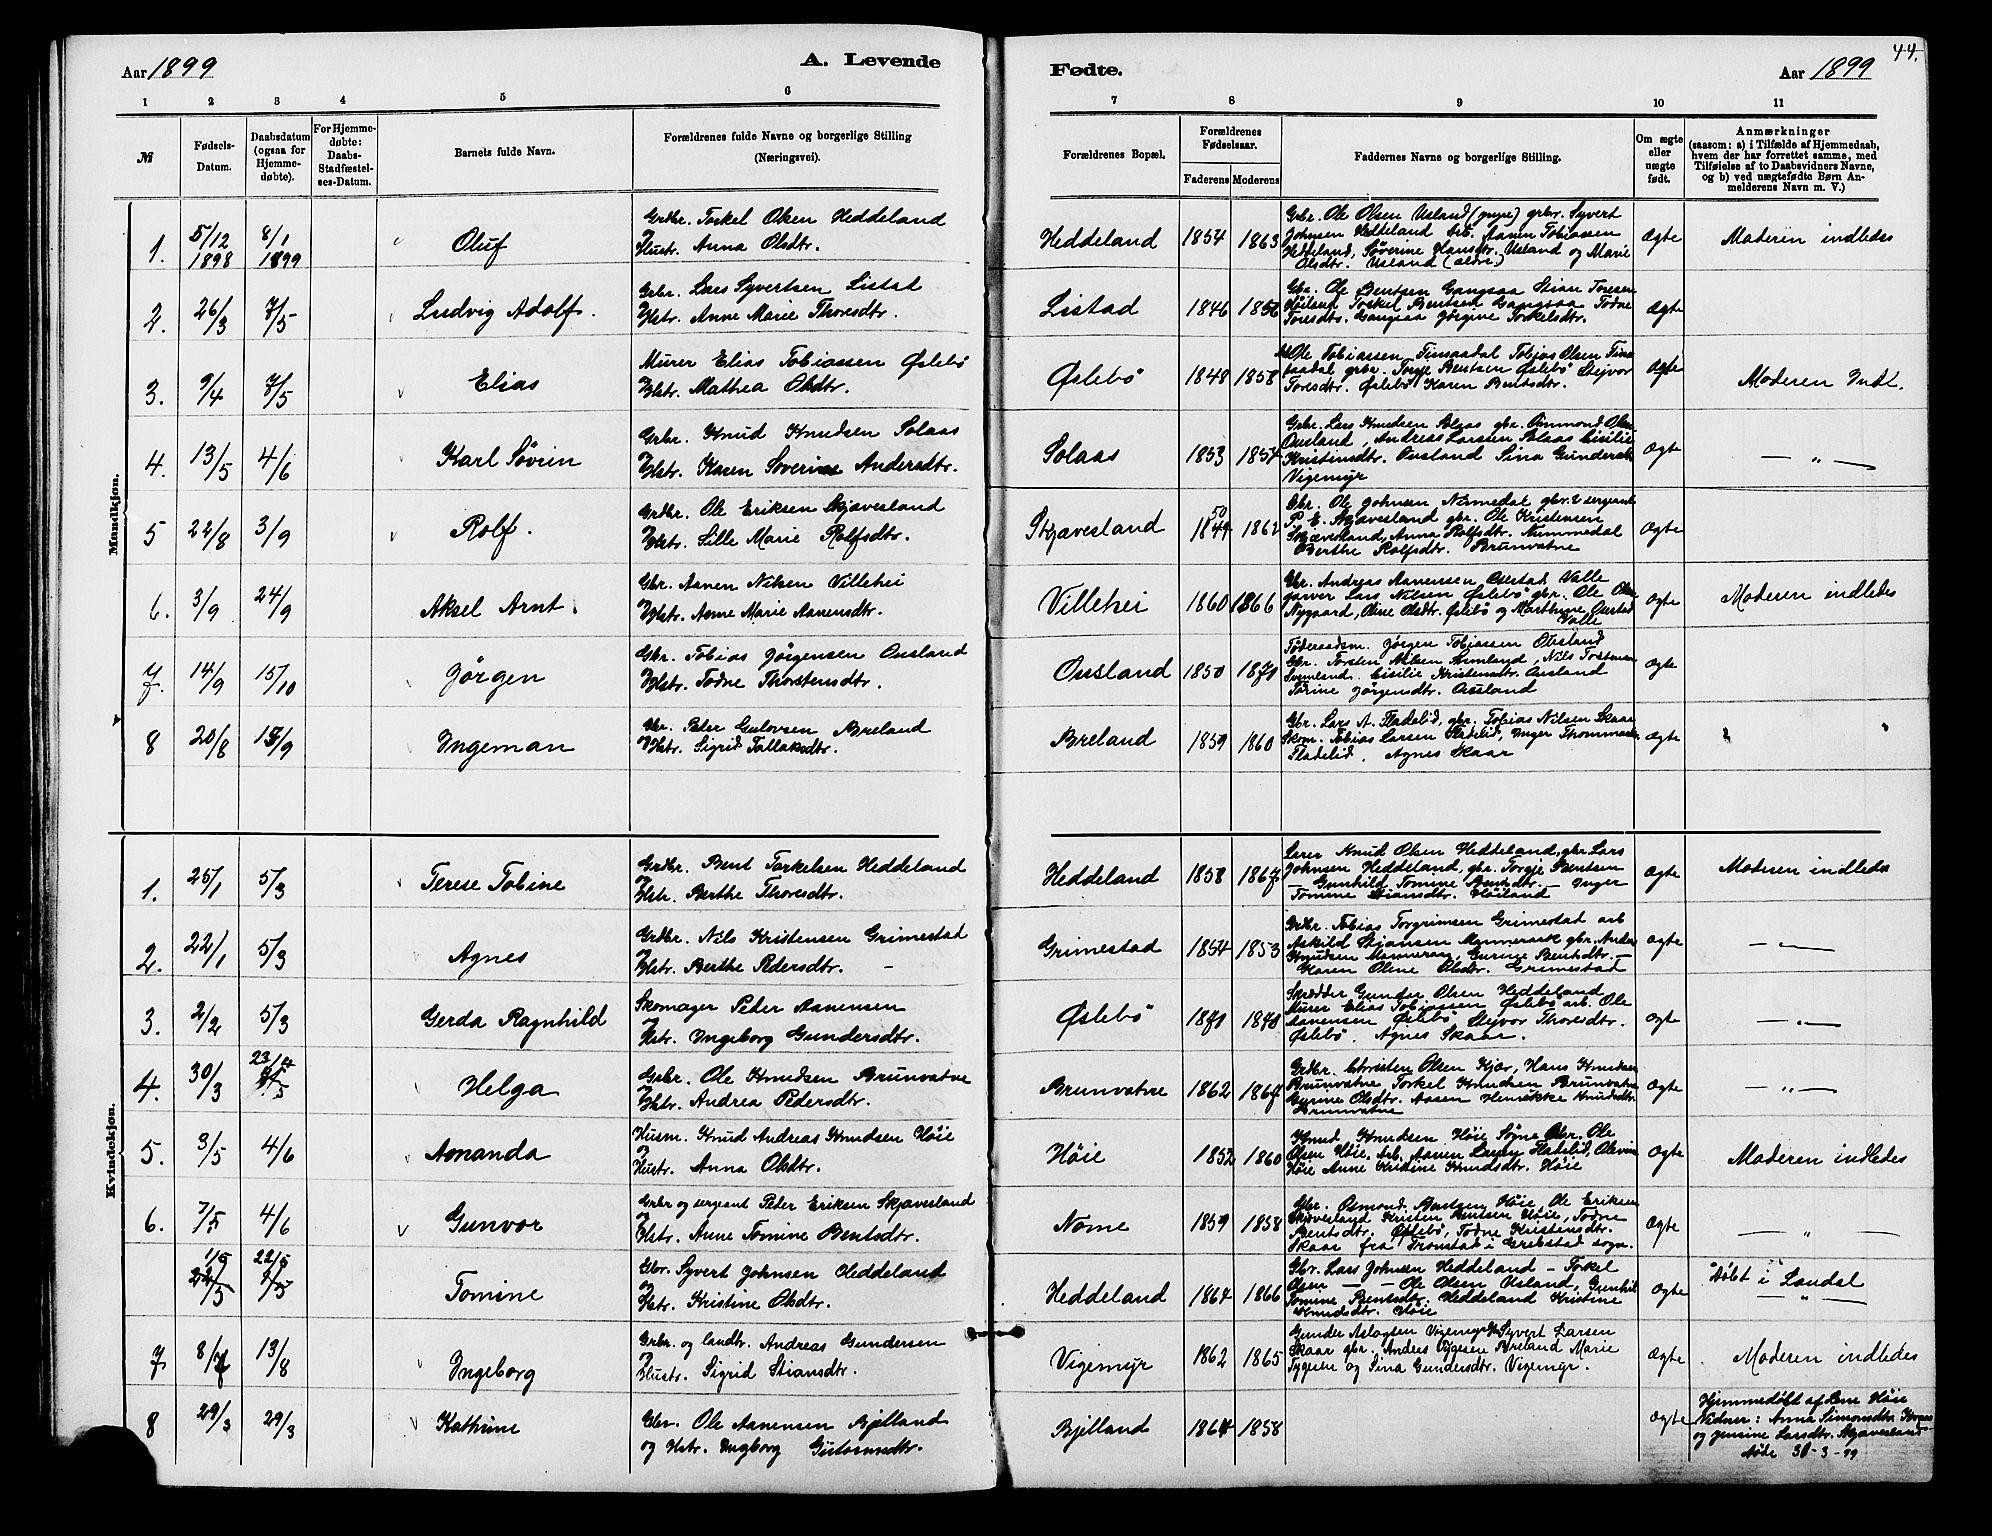 Aar 1899
A. Levende
Fødte.
Aar 1899
44.
1 2 3 4 5 6 7 8 9 10 11
№
Fødsels-
Datum.
Daabsdatum
(ogsaa for
Hjemme-
døbte).
For Hjemme-
døbte:
Daabs-
Stadfæstel-
ses-Datum.
Barnets fulde Navn.
Forældrenes fulde Navne og borgerlige Stilling
(Næringsvei).
Forældrenes Bopæl.
Forældrenes
Fødselsaar.
Faderens Moderens
Faddernes Navne og borgerlige Stilling.
Om ægte
eller
uægte
født.
Anmærkninger
(saasom: a) i Tilfælde af Hjemmedaab,
hvem der har forrettet samme, med
Tilføielse af to Daabsvidners Navne,
og b) ved uægtefødte Børn An-
melderens Navn m. V.)
Mandkjøn.
1. 5/12 1898 8/1 1899 Oluf
Grdbr. Torkel Olsen Heddeland
og Hustr. Anna Olsdtr.
Heddeland 1854 1863
Grbr. Ole Olsen Usland (yngre) grbr. Syvert
Johnsen Heddeland arb. Aanen Tobiassen
Heddeland, Søverine Hansdtr. Usland og Marie
Olsdtr. Usland (ældre)
Ægte Moderen indledes
2. 26/3 7/5 Ludvig Adolf.
Grbr. Lars Syvertsen Listad
og Hstr. Anne Marie Thoresdtr.
Listad 1846 1856
Gbr. Ole Bentsen Gangsaa Stian Toresen
Høiland Torkel Bentsen Gangsaa Todne
Toresdtr. Gangsaa Jørgine Torkelsdtr.
Ægte
3. 9/4 7/5 Elias
Murer Elias Tobiassen Øslebö
og Hstr. Mathea Olsdtr.
Øslebö 1848 1858
Ole Tobiassen Finsaadal Tobias Olsen Fins
aadal grbr. Torje Bentsen Øslebö Stejvor
Toresdtr. Øslebö Karen Bentsdtr.
Ægte Moderen Indl.
4. 13/5 4/6 Karl Sövrin
Grbr. Knud Knudsen Solaas
og Hstr. Karen Soverine Andersdtr.
Solaas 1853 1854
Grbr. Lars Knudsen Solaas gbr. Ommond Olsen
Ousland, Andreas Larsen Solaas Cisilie
Kristensdtr. Ousland Sina Gundersdtr.
Vigemyr
Ægte — „ —
5 22/8 3/9 Rolf.
Grdbr. Ole Eriksen Skjævesland
og Hstr. Lille Marie Rolfsdtr.
Skjævesland 50 1849 1862
Gbr. Ole Johnsen Nummedal gbr. & sergeant
P. E. Skjævesland gbr. Ole Kristensen
Skjævesland, Anna Rolfsdtr. Nummedal
Berthe Rolfsdtr. Brunvatne
Ægte
6. 3/9 24/9 Aksel Arnt.
Gbr. Aanen Nilsen Villehei
og Hstr. Anne Marie Aanensdtr.
Villehei 1860 1866
Gbr. Andreas Aanensen Ouestad Valle
garver Lars Nilsen Øslebö gbr. Ole Olsen
Nygaard, Oline Olsdtr. Øslebö og Marthine Ouestad
Valle
Ægte Moderen indledes
7. 14/9 15/10 Jørgen
Gbr. Tobias Jørgensen Ousland
og Hstr. Todne Thorstensdtr.
Ousland 1850 1871
Føderaadsm. Jørgen Tobiassen Ousland
Gbr. Torsten Nilsen, Nils Torstensen
Cisilie Kristensdtr. Ousland
Jørgensdtr. Ousland
Ægte
8 20/8 /9 Ingeman
Gbr. Peder Gulovsen Breland
og Hstr. Sigrid Tallaksdtr.
Breland 1859 1860
Gbr. Lars A. Fladelid, gbr. Tobias Nilsen Skaar
Skom. Tobias Larsen Fladelid, Inger Thommasdtr.
Fladelid, Agnes Skaar
Ægte
Kvindekjøn.
1. 25/1 5/3 Terese Tobine
Grdbr. Bent Torkelsen Heddeland
og Hstr. Berthe Thoresdtr.
Heddeland 1858 1867
Lærer Knud Olsen Heddeland, gbr. Lars
Johnsen Heddeland, gbr. Torgje Bentsen
— Gunhild Tomine Bentsdtr. — Inger
Tomine Stiansdtr. Høiland
Ægte Moderen indledes
2. 22/1 5/3 Agnes
Grdbr. Nils Kristensen Grimestad
og Hstr. Berthe Pedersdtr. —
Grimestad 1854 1853
Grdbr. Tobias Torgrimsen Grimestad arb
Askild Stjansen Mannerak gbr. Anders
Knudsen, Gurine Bentsdtr. —
Karen Oline Olsdtr. Grimestad
Ægte — „ —
3. 2/2 5/3 Gerda Ragnhild
Skomager Peder Aanensen
og Hstr. Ingeborg Gundersdtr.
Øslebö 1871 1870
Skrædder Gunder Olsen Heddeland
Murer Elias Tobiassen Øslebö arb. Ole
Aanensen Øslebö Stejvor Thoresdtr.
Øslebö. Agnes Skaar.
Ægte — „ —
4. 30/3 23/4 Helga
Grbr. Ole Knudsen Brunvatne
og Hstr. Andrea Pedersdtr.
Brunvatne 1862 1867
Grdbr. Christen Olsen Kjær, Hans Knudsen
Brunvatne, Torkel Knudsen Brunvatne
Gurine Olsdtr. Aasen Henrikke Knudsdtr.
Brunvatne
Ægte — „ —
5. 3/5 4/6 Amanda
Husm. Knud Andreas Knudsen Høie
og Hustr. Anna Olsdtr.
Høie 1852 1860
Knud Knudsen Høie Søgne Gbr. Ole
Olsen Høie, Arb. Aanen Larsen Fladelid, Olevine
Høie Anne Kristine Knudsdtr. Høie
Ægte Moderen indledes
6. 7/5 4/6 Gunvor
Grbr og sergeant Peder Eriksen Skjævesland
og Hstr. Anne Tomine Bentsdtr.
Nome 1859 1858
Gbr. Osmond Bentsen Høie, Ole Eriksen
Skjæverland Kristen Bentsen Høie, Todne
Bentsdtr. Øslebö, Todne Kristensdtr.
Skaar fra Tronstad i Grebstad sogn.
Ægte — „ —
1/5 22/5 Tomine
Gbr. Syvert Johnsen Heddeland
og Hstr. Kristine Olsdtr.
Heddeland 1864 1866
Gbr. Lars Johnsen Heddeland — Torkel
Olsen — — Ole Olsen Usland, Gunhild
Tomine Bentsdtr. Heddeland Kristine
Knudsdtr. Høie
Ægte Døbt i Laudal
— „ —
7. 8/7 13/8 Ingeborg
Grbr. og landtr. Andreas Gundersen
og Hustr. Sigrid Stiansdtr.
Vigemyr 1862 1865
Gunder Aslagsen Vigemyr Syvert Larsen
Skaar gbr. Anders Tygesen Breland Marie
Tygesen og Sina Gundersdtr. Vigemyr.
Ægte Moderen indledes
8 29/3 29/3 Kathrine
Gbr. Ole Aanensen Bjelland
og Hstr. Ingborg Gulovsendtr.
Bjelland 1864 1858
Ægte
Hjemmedøbt af Høie
Vidner: Anna Simonsdtr.
og Larsdtr. Skjævesland
døde 30-3-99